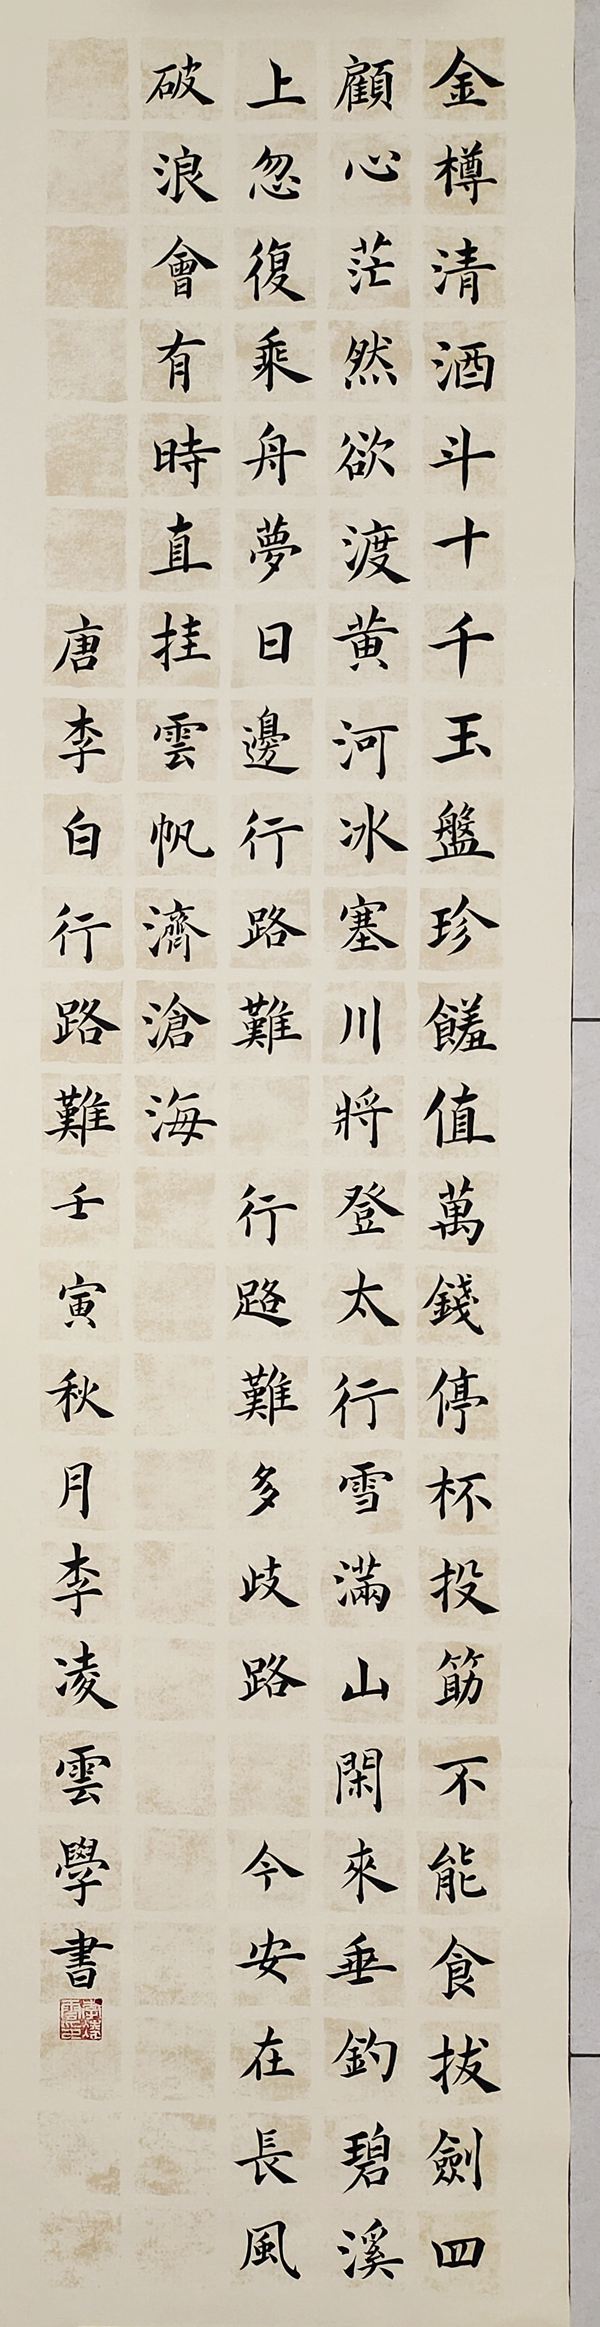 金樽清酒斗十千玉盤珍饈值萬錢停杯投筯不能食拔劍四
顧心茫然欲渡黃河冰塞川將登太行雪滿山閑來垂釣碧溪
上忽復乘舟夢日邊行路難 行路難多歧路 今安在長風
破浪會有時直挂雲帆濟滄海
唐李白行路難壬寅秋月李凌雲學書